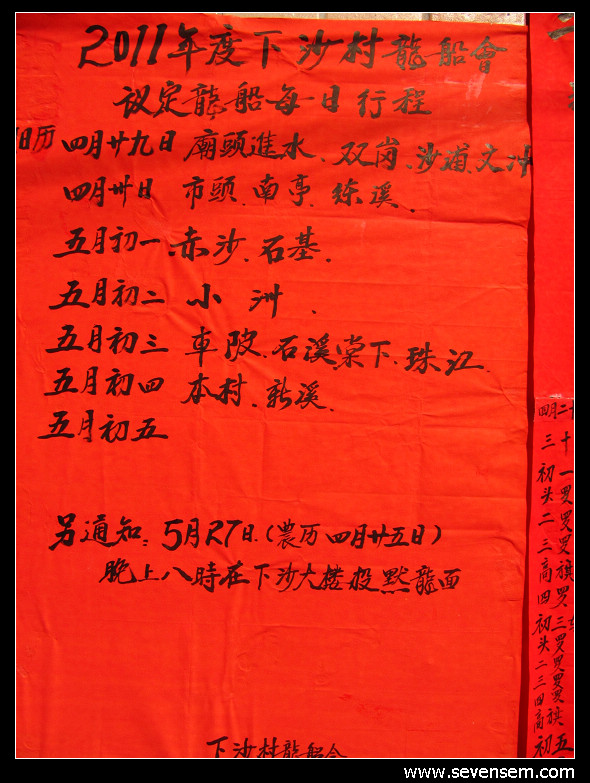 2011年度下沙村龍船會
议定龍船每日行程
旧历 四月廿九日 廟頭進水、双岗、沙浦、文冲
四月卅日 市頭、南亭、练溪、
五月初一 赤沙、石基、
五月初二 小洲、
五月初三 車陂、石溪棠下、珠江
五月初四 本村、新溪、
五月初五
另通知：5月27日（農历四月廿五日）
晚上八時在下沙大楼投默龍面
下沙村龍船会
四月二十
三十
初一
头罗
二罗
三罗
高旗
四罗
初三
头罗
二罗
三罗
四罗
高旗
初五
www.sevensem.com